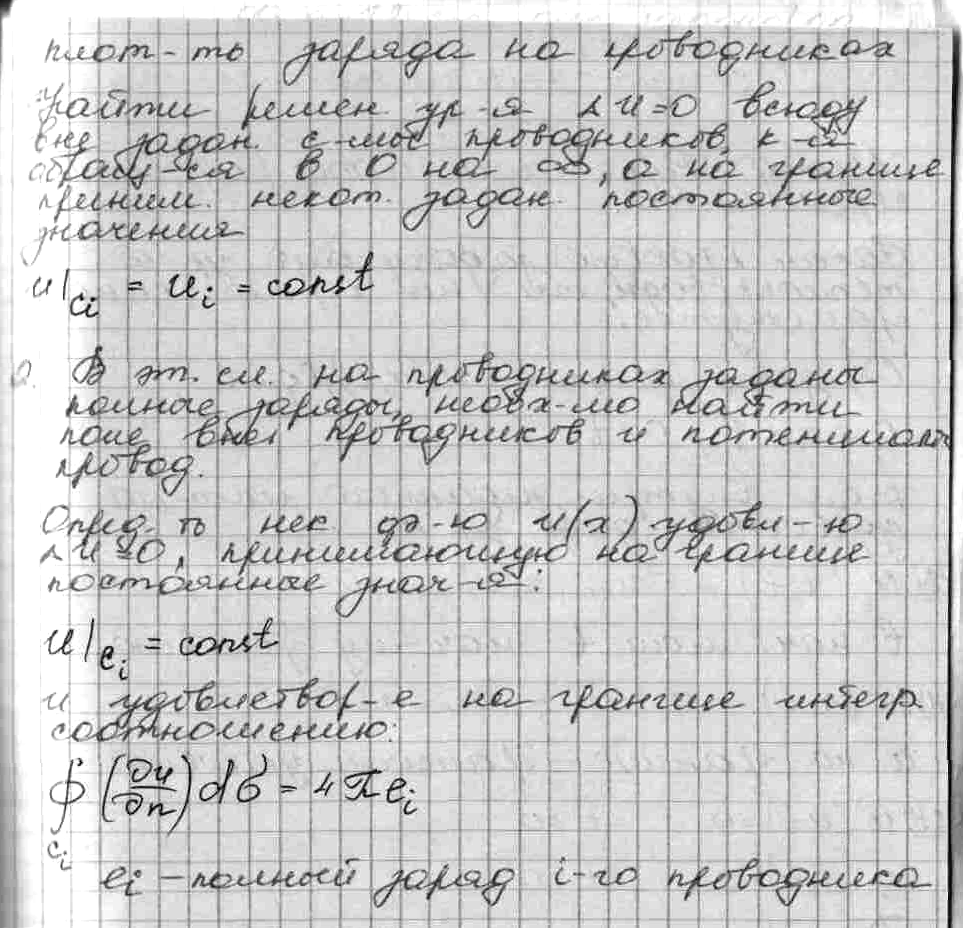 плот-ть заряда на проводниках
Найти решен. ур-я Δu=0 всюду
вне задан. с-мы проводников, к-й
обращ-ся в 0 на ∞, а на границе
приним. некот. задан. постоянные
значения
u|_{c_i} = u_i = const
2. В эт. сл. на проводниках заданы
полные заряды, необх-мо найти
поле вне проводников и потенциалы
провод.
Опред-ть нек. ф-ю u(x) удовл-ю
Δu=0, принимающую на границе
постоянные знач-я:
u|_{c_i} = const
и удовлетвор-е на границе интегр.
соотношению:
∮_{c_i} (∂u/∂n) dσ = 4πe_i
e_i – полный заряд i-го проводника